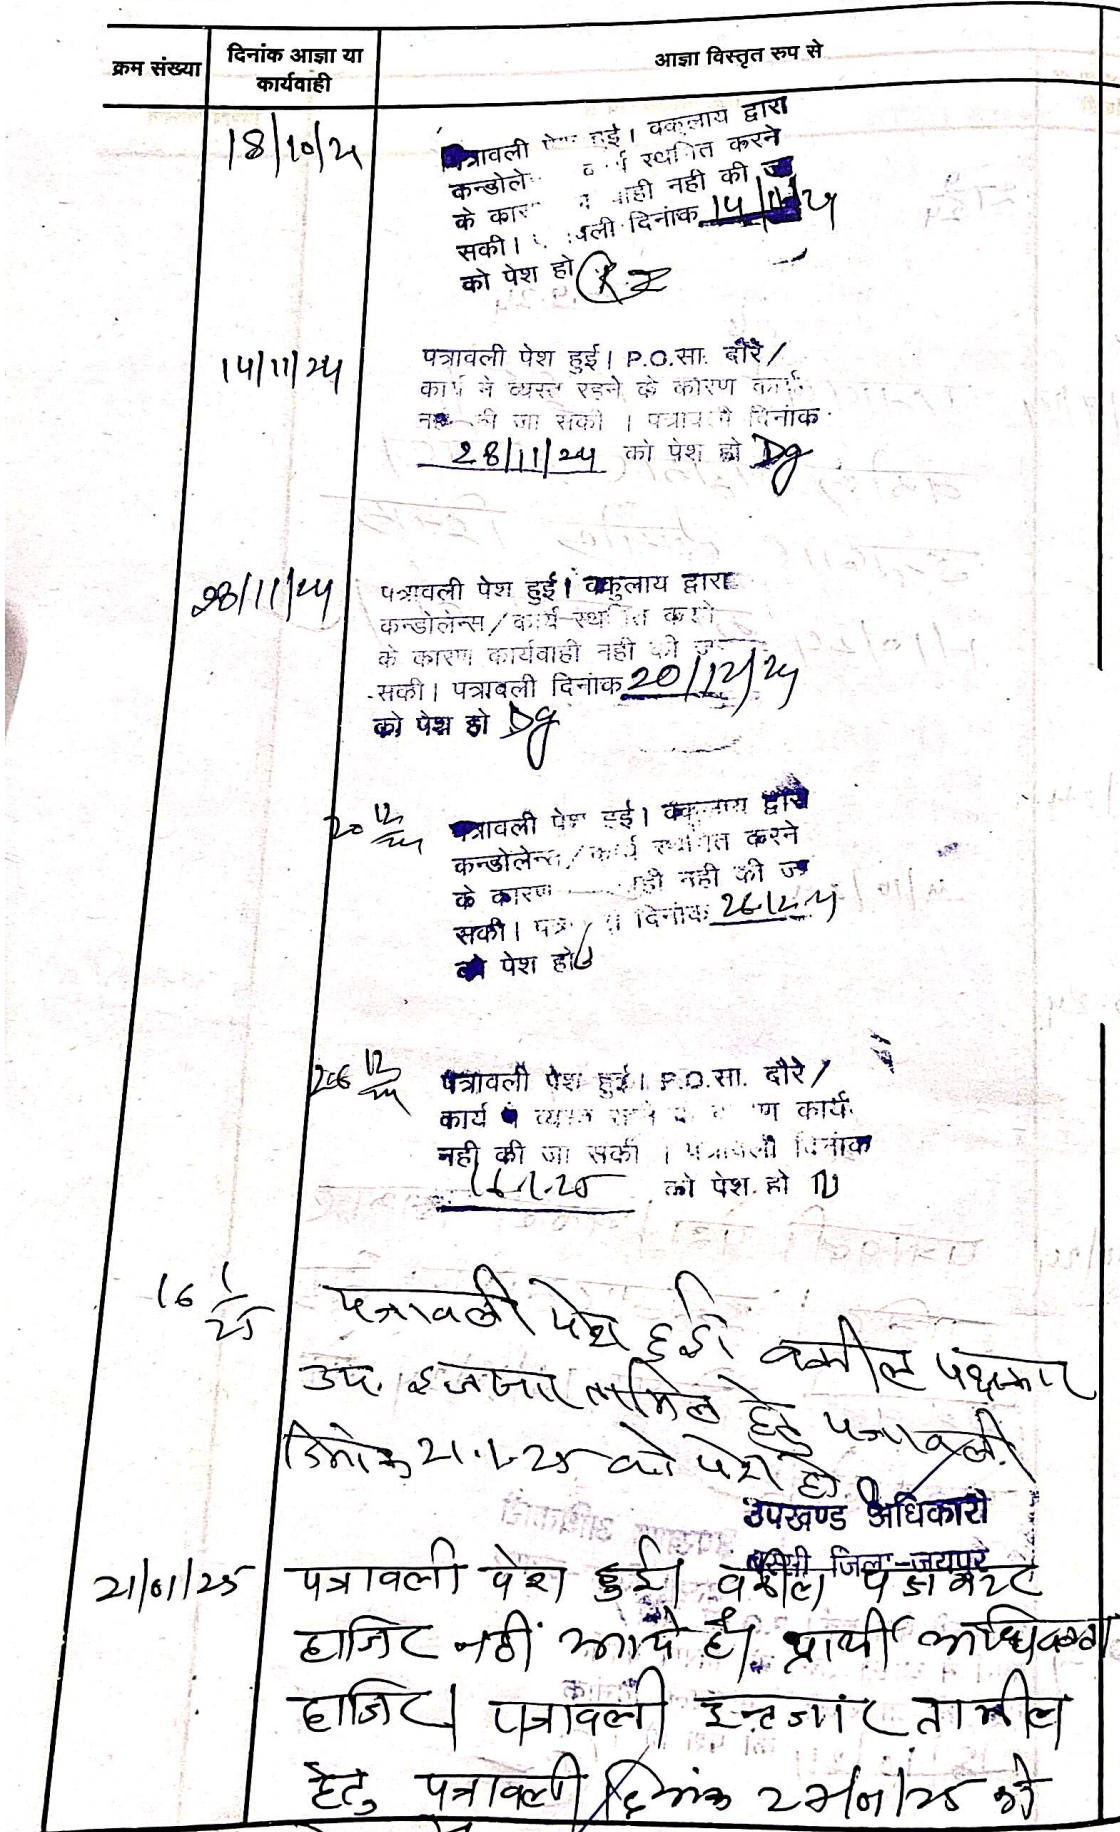 क्रम संख्या
दिनांक आज्ञा या
कार्यवाही
आज्ञा विस्तृत रुप से
18/10/24
पत्रावली पेश हुई। वकुलाय द्वारा
कन्डोले स्थगित करने
के कार वाही नही की जा
सकी। वली दिनांक 14/11/24
को पेश हो
14/11/24
पत्रावली पेश हुई। P.O.सा. दौरे/
कार्य मे व्यस्त रहने के कारण कार्य.
नही की जा सकी । पत्रावली दिनांक
28/11/24 को पेश हो
28/11/24
पत्रावली पेश हुई। वकुलाय द्वारा
कन्डोलेन्स/कार्य स्थगित करने
के कारण कार्यवाही नही की जा
सकी। पत्रावली दिनांक 20/12/24
को पेश हो
20 12/24
पत्रावली पेश हुई। वकुलाय द्वारा
कन्डोलेन्स/कार्य स्थगित करने
के कारण ही नही की जा
सकी। पत्रा दिनांक 26/12/24
को पेश हो
26 12/24
पत्रावली पेश हुई। P.O.सा. दौरे/
कार्य मे व्यस्त रहने कार्य.
नही की जा सकी । पत्रावली दिनांक
16-1-25 को पेश हो
16 1/25
पत्रावली पेश हुई। वकील पक्षकार
उप. इन्तजार तामिल हेतु पत्रावली
दिनांक 21-1-25 को पेश हो
उपखण्ड अधिकारी
बस्सी जिला-जयपुर
21/01/25
पत्रावली पेश हुई। वकील
हाजिर नहीं आये है। प्रार्थी अधिवक्ता
हाजिर। पत्रावली इन्तजार तामील
हेतु पत्रावली दिनांक 27/01/25 को